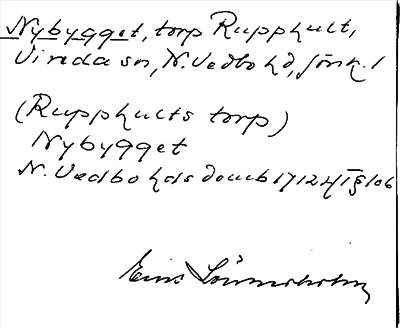 Nybygget, torp Rupphult,
Vireda sn, N. Vedbo hd, Jönk. l
(Rupphults torp)
Nybygget
N. Vedbo hds domb 1712 4/1 § 106